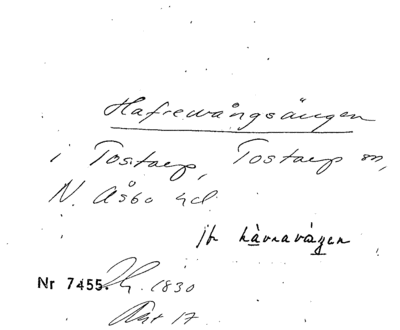 Hafrewångsängen
i Tostarp, Tostarp sn,
N. Åsbo hd
jfr hàvravàgen
Nr 7455. 1830
Akt 17